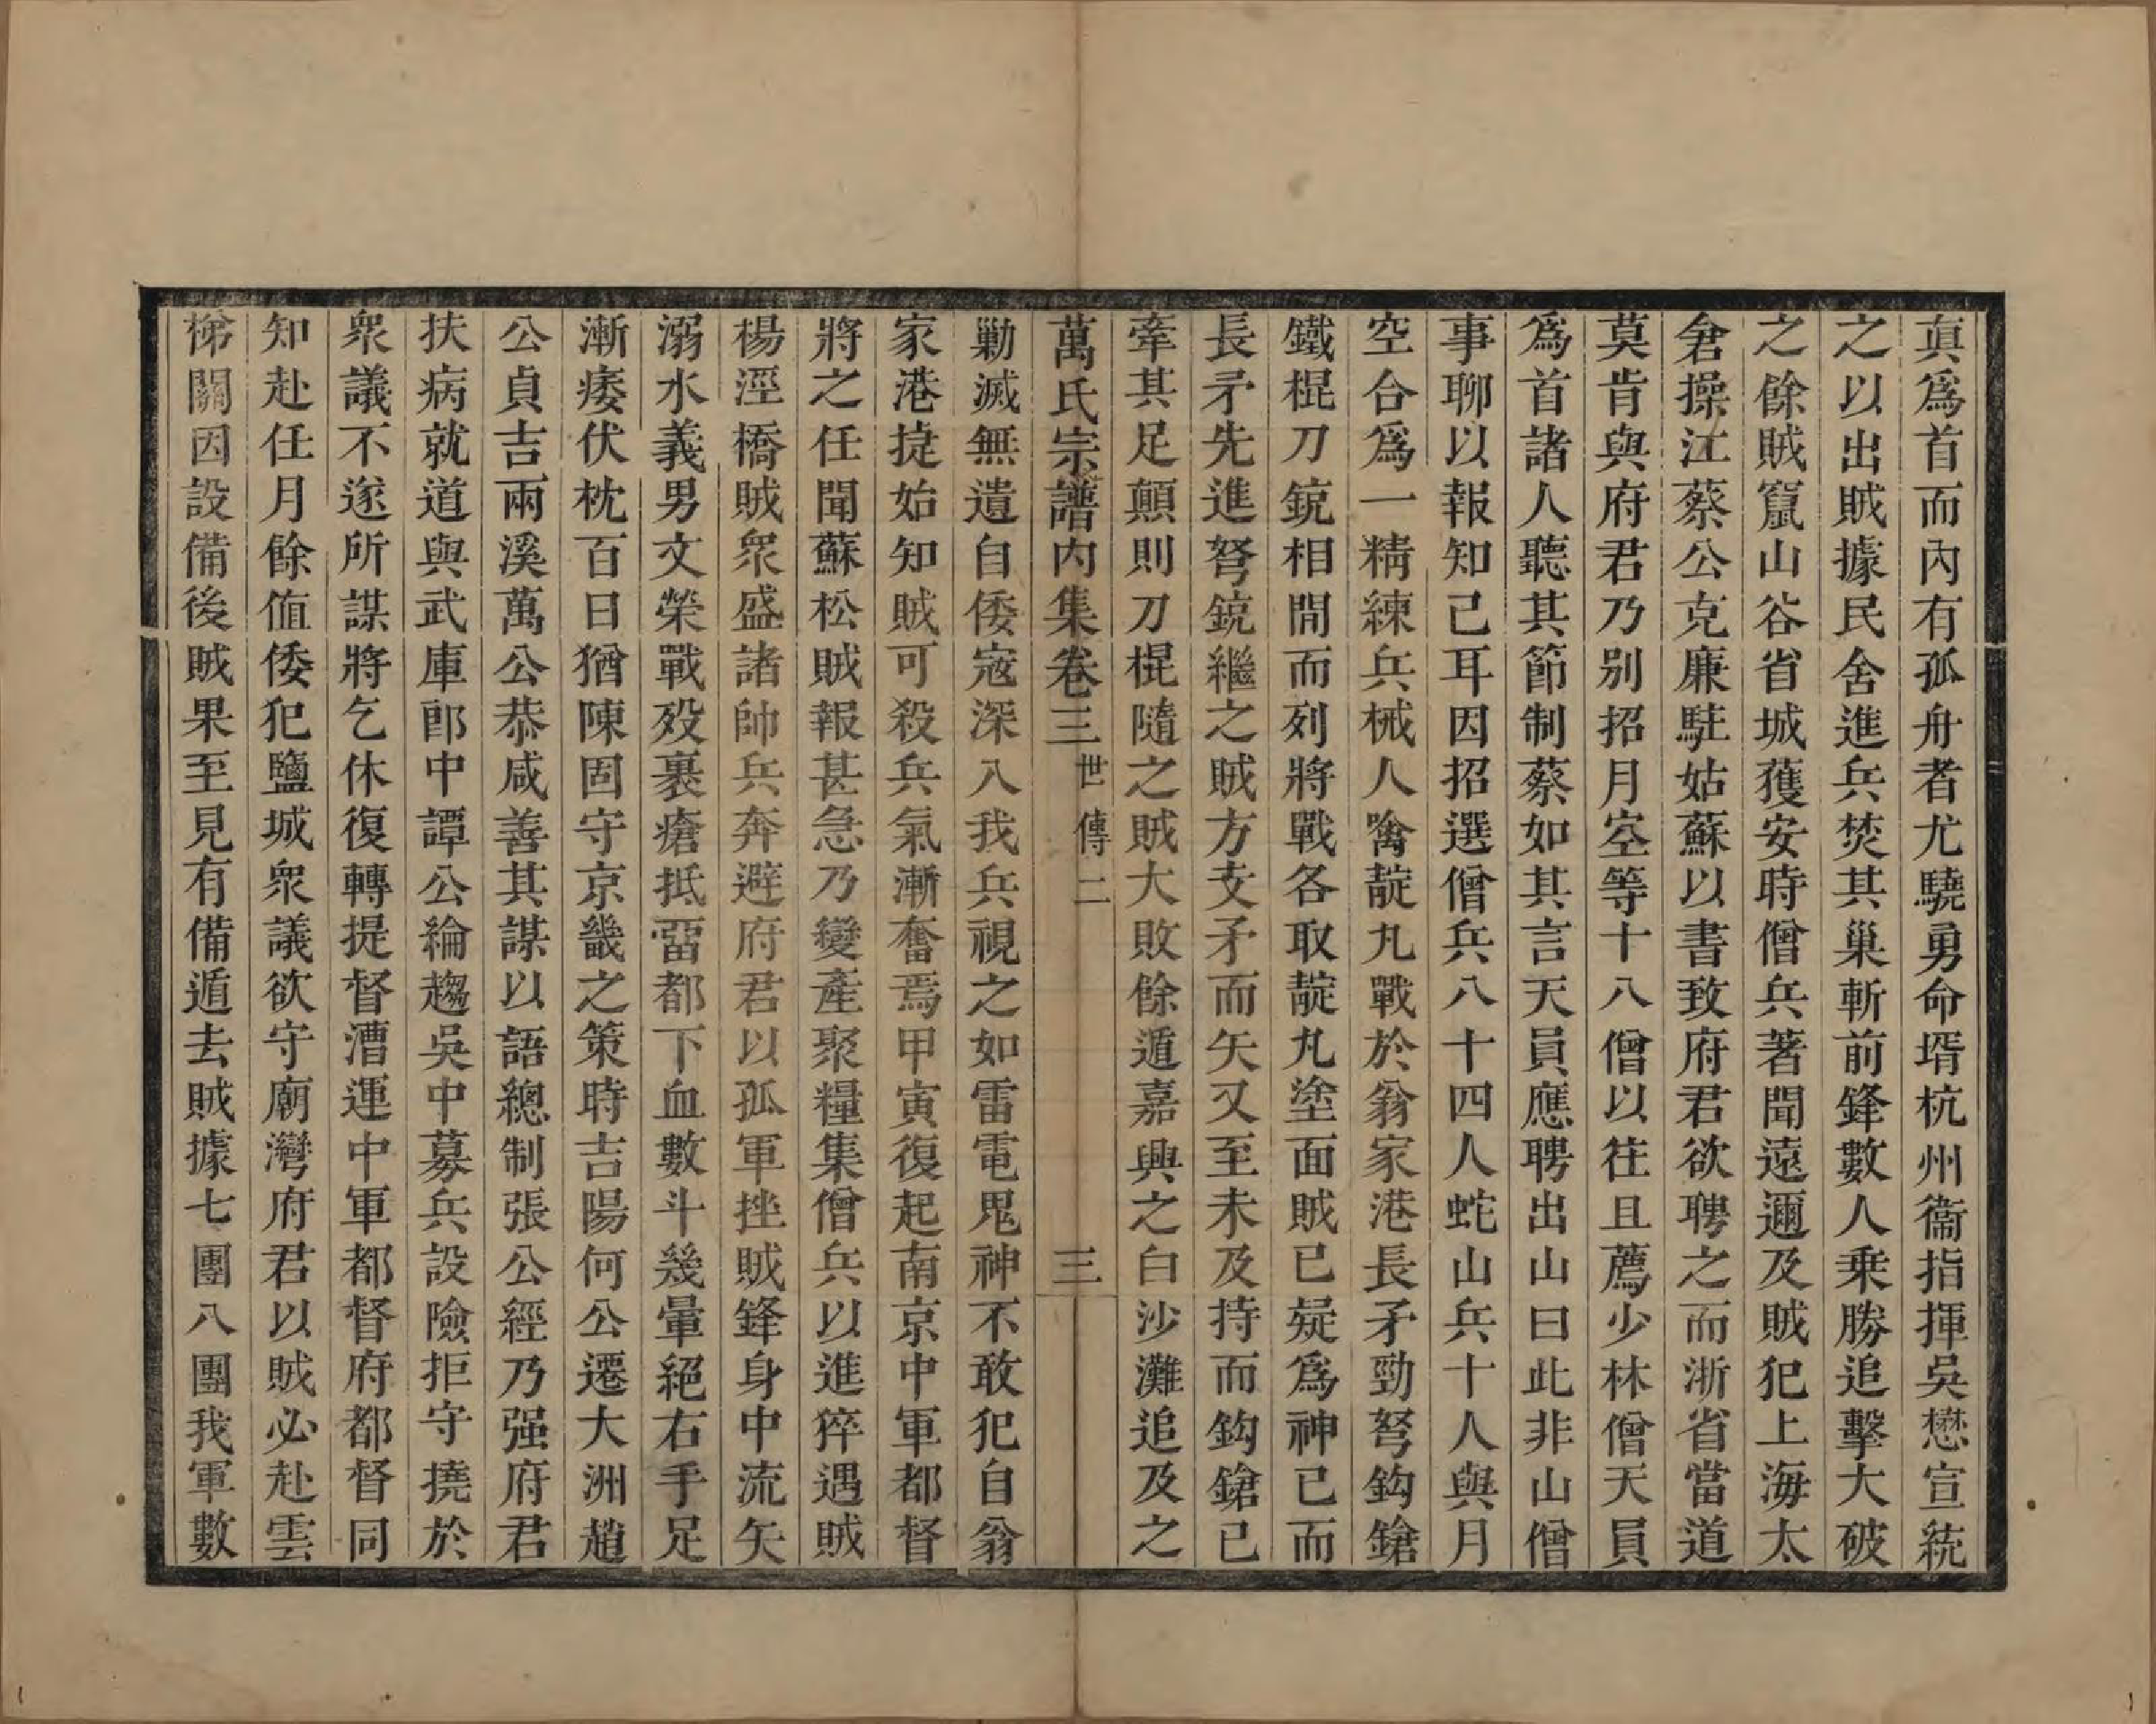 眞爲首而內有孤舟者尤驍勇命壻杭州衞指揮吳懋宣統
之以出賊據民舍進兵焚其巢斬前鋒數人乘勝追擊大破
之餘賊竄山谷省城獲安時僧兵著聞遠邇及賊犯上海太
倉操江蔡公克廉駐姑蘇以書致府君欲聘之而浙省當道
莫肯與府君乃別招月空等十八僧以往且薦少林僧天員
爲首諸人聽其節制蔡如其言天員應聘出山曰此非山僧
事聊以報知己耳因招選僧兵八十四人蛇山兵十人與月
空合爲一精練兵械人噙靛丸戰於翁家港長矛勁弩鈎鎗
鐵棍刀鋭相間而列將戰各取靛丸塗面賊已疑爲神已而
長矛先進弩鋭繼之賊方支矛而矢又至未及持而鈎鎗已
牽其足顚則刀棍隨之賊大敗餘遁嘉興之白沙灘追及之
萬氏宗譜內集卷三 世傳二 三
勦滅無遺自倭寇深入我兵視之如雷電鬼神不敢犯自翁
家港捷始知賊可殺兵氣漸奮焉甲寅復起南京中軍都督
將之任聞蘇松賊報甚急乃變產聚糧集僧兵以進猝遇賊
楊涇橋賊衆盛諸帥兵奔避府君以孤軍挫賊鋒身中流矢
溺水義男文榮戰歿裹瘡抵畱都下血數斗幾暈絕右手足
漸痿伏枕百日猶陳固守京畿之策時吉陽何公遷大洲趙
公貞吉兩溪萬公恭咸善其謀以語總制張公經乃强府君
扶病就道與武庫郎中譚公綸趨吳中募兵設險拒守撓於
衆議不遂所謀將乞休復轉提督漕運中軍都督府都督同
知赴任月餘値倭犯鹽城衆議欲守廟灣府君以賊必赴雲
梯關因設備後賊果至見有備遁去賊據七團八團我軍數